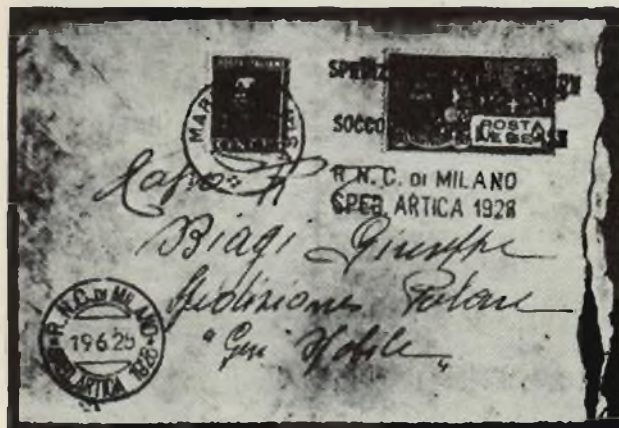 POSTE ITALIANE
SPEDIZ
SOCCO
POSTA
AEREA
MAR
R.N.C. DI MILANO
SPED. ARTICA 1928
Capo
Biagi Giuseppe
Spedizione Polare
"Gen Nobile"
R.N.C. DI MILANO
19.6.28
SPED. ARTICA 1928